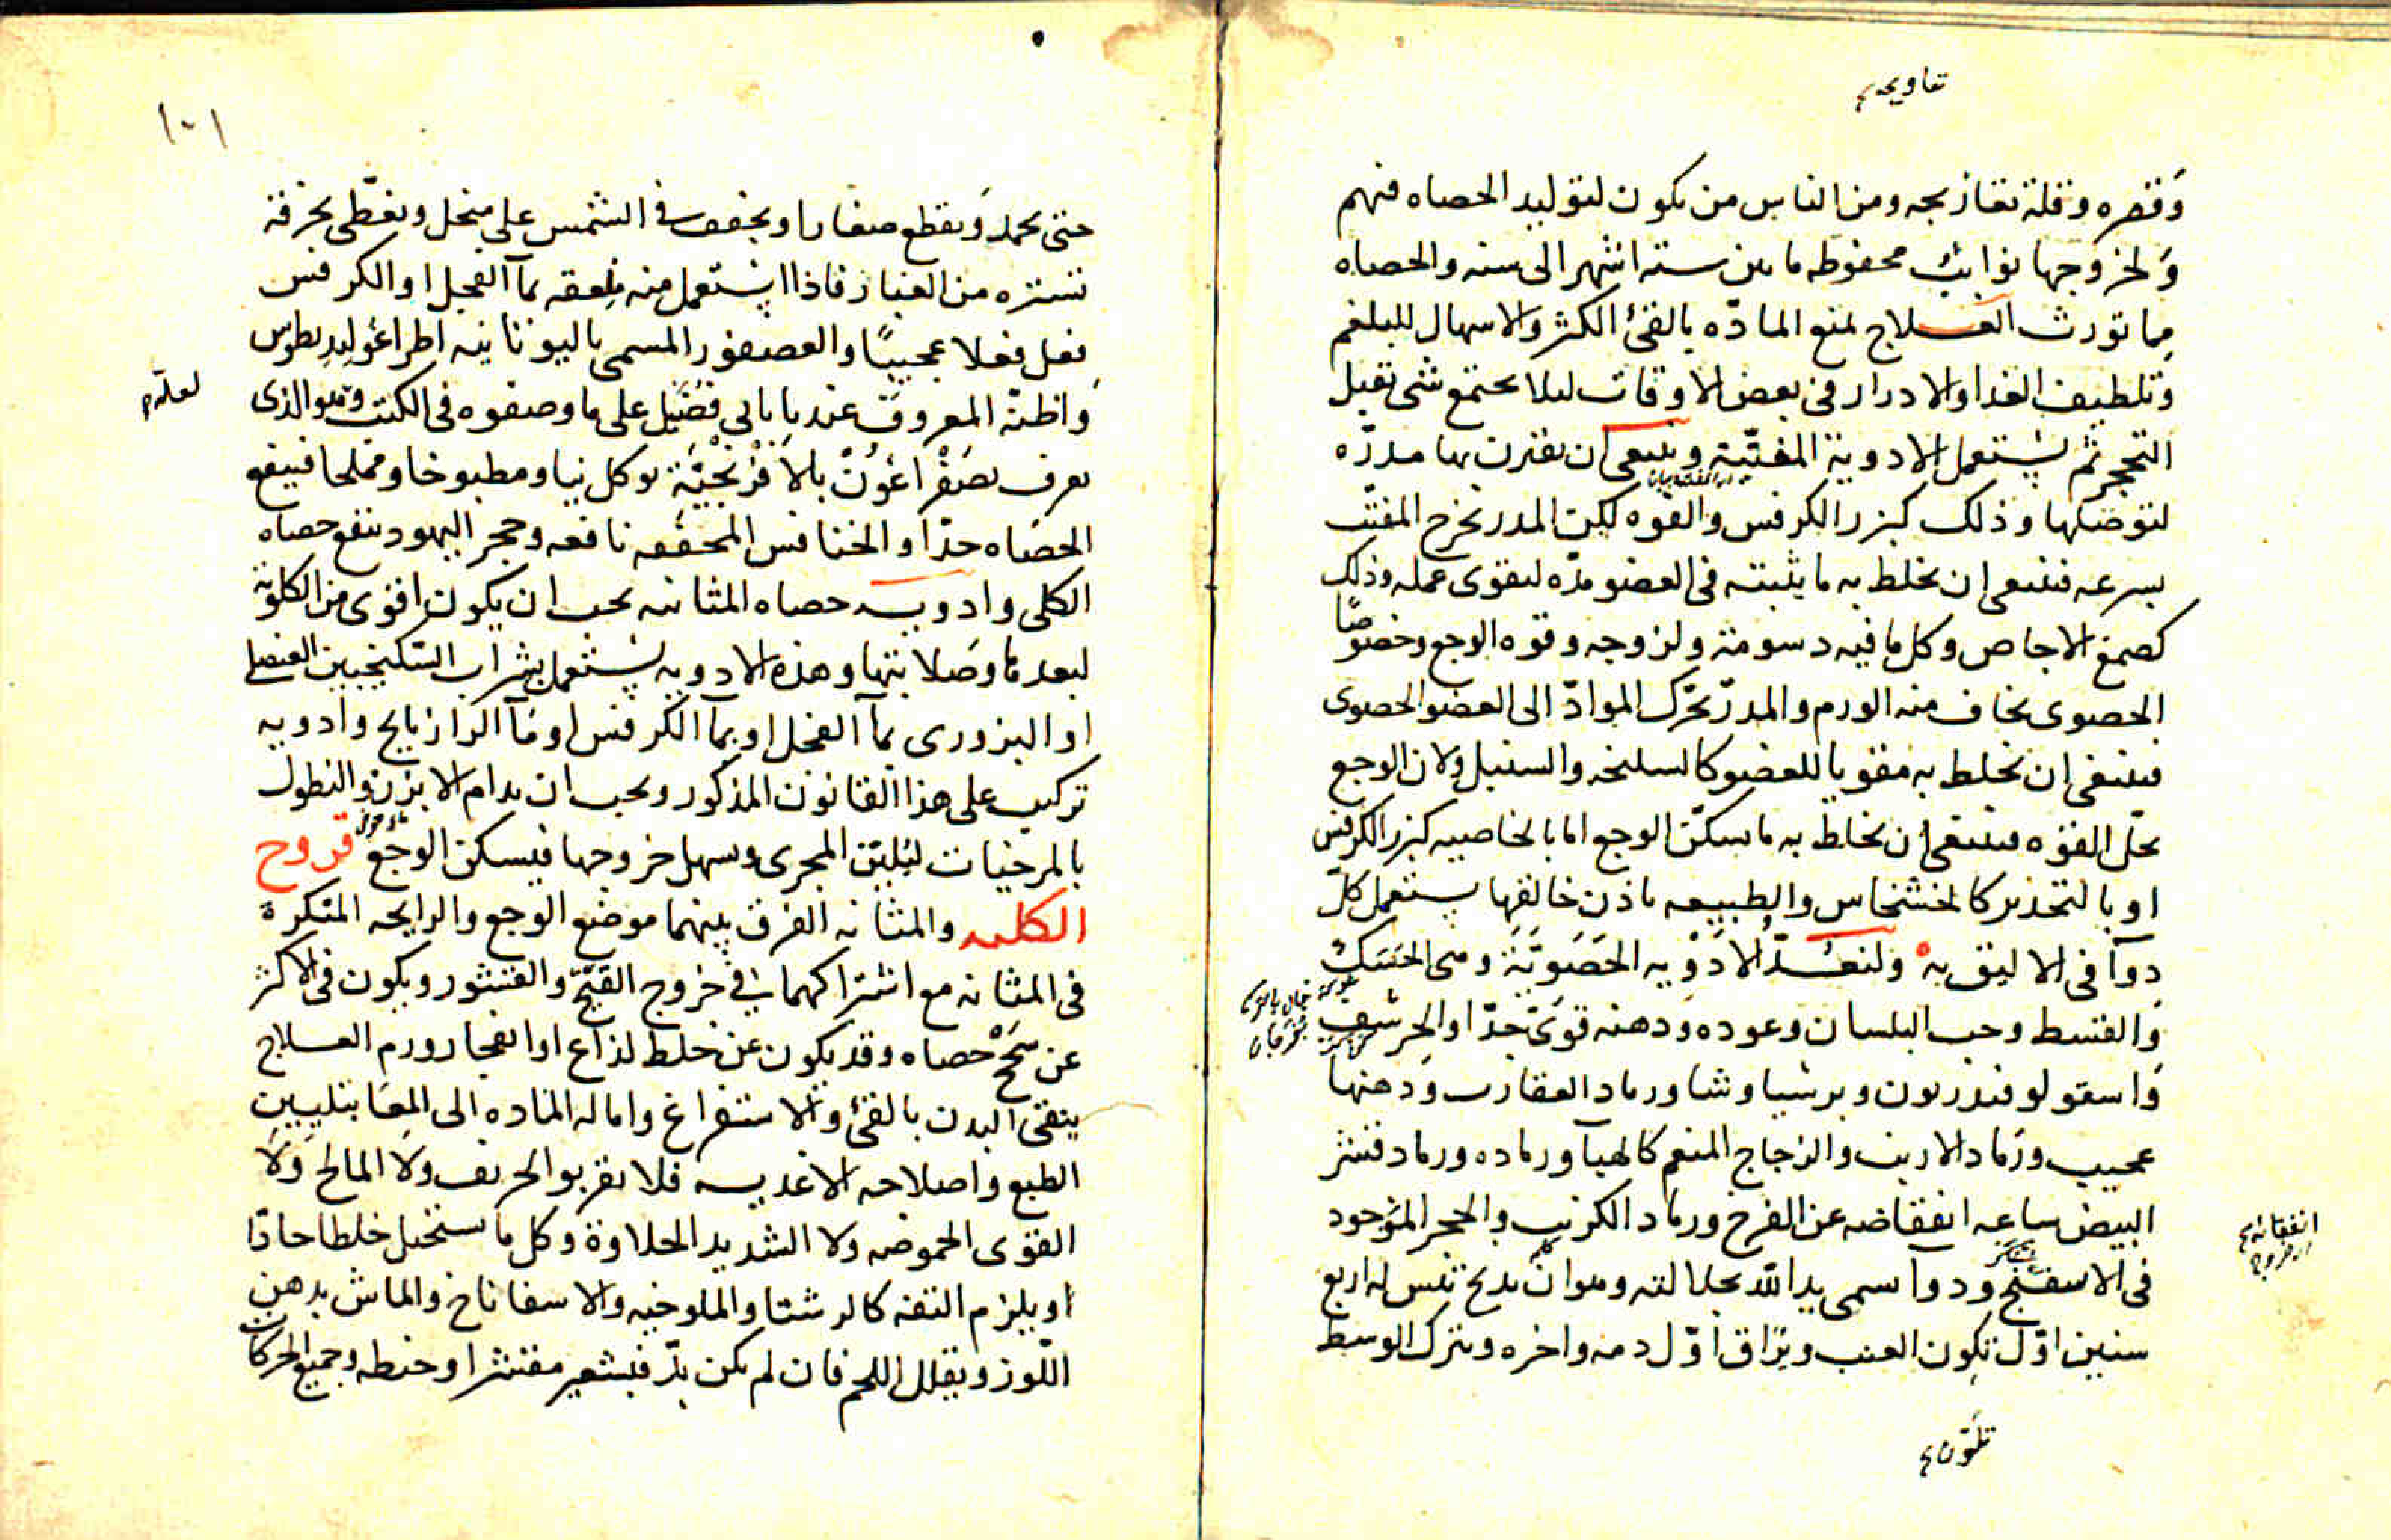 تعاويجه
وقصره وقلة تعاريجه ومن الناس من يكون لتوليد الحصاه فيهم
ولخروجها نوايب محفوظه ما بين سته اشهر الى سنه والحصاه
مما تورث العلاج لمنع المادّه بالقئ الكثر والاسهال للبلغم
وتلطيف الغدا والادرار فى بعض الاوقات ليلا يجتمع شى يقبل
التحجر ثم يستعمل الادوية المفتّته وينبغى ان يقترن بها مدرّه
لتوصلها وذلك كبزر الكرفس والفوه لكن المدر يخرج المفتت
بسرعه فينبغى ان يخلط به ما يثبته فى العضو مدّه ليقوى عمله وذلك
كصمغ الاجاص وكل ما فيه دسومة ولزوجه وقوه الوجع وخصوصًا
الحصوى يخاف منه الورم والمدرّ يحرّك الموادّ الى العضو الحصوى
فينبغى ان يخلط به مقويا للعضو كالسليخه والسنبل ولان الوجع
يحلّ القوّه فينبغى ان يخلط به ما يسكّن الوجع اما بالخاصيه كبزر الكرفس
او بالتخدير كالخشخاش والطبيعه باذن خالقها يستعمل كلّ
دوآ فى الاليق به ولنعدّ الادويه الحصَويّة وهى الحسك
والقسط وحب البلسان وعوده ودهنه قوىّ جدّا والحرشف
واسقولوفندريون وبرشياوشا ورماد العقارب ودهنها
عجيب ورماد الارنب والزجاج المنعم كالهبآ ورماده ورماد قشر
البيض ساعه انفقاصه عن الفرخ ورماد الكرنب والحجر الموجود
انفقائه
فى الاسفنج ودوآ سمى يد الله بجلالته وهو ان يذبح تيس له اربع
سنين اوّل تكون العنب ويراق اوّل دمه واخره ويترك الوسط
تلوّن
١٠١
حتى يجمد ويقطع صغارا ويجفف فى الشمس على منخل ويغطّى بخرقة
تستره من الغبار فاذا استعمل منه ملعقه بمآ الفجل او الكرفس
فعل فعلا عجيبًا والعصفور المسمى باليونانيه اطراغوليديطوس
واظنّه المعروف عند بابالى فضيل على ما وصفوه فى الكتب وهو الذى
لعلّه
يعرف بصَفْراغُون بالافْرنْجيّة يوكل نيا ومطبوخا ومملحا فينفع
الحصاه جدّا والخنافس المجففه نافعه وحجر اليهود ينفع حصاه
الكلى وادويه حصاه المثانه يجب ان يكون اقوى من الكلويّة
لبعدها وصلابتها وهذه الادويه يستعمل بشراب السكنجبين العنصلى
او البزورى بمآ الفجل او بمآ الكرفس او مآ الرازيانج وادويه
تركب على هذا القانون المذكور ويجب ان يدام الابزن والنطول
بالمرخيات ليُليّن المجرى وسهل خروجها فيسكن الوجع قروح
الكليه والمثانه الفرق بينهما موضع الوجع والرايحه المنكرة
فى المثانه مع اشتراكهما فى خروج القيح والقشور ويكون فى الاكثر
عن سحج حصاه وقد يكون عن خلط لذاع او انفجار ورم العلاج
ينقى البدن بالقئ والاستفراغ واماله الماده الى المعا بتليين
الطبع واصلاحه الاغديه فلا يقربوا الحريف ولا المالح ولا
القوى الحموضه ولا الشديد الحلاوة وكل ما يستحيل خلطا حادّا
او يلزم التفه كالرشتا والملوخيه والاسفاناخ والماش بدهن
اللّوز ويقلل اللحم فان لم يكن بدّ فبشعير مقشر او حنطه وجميع الحركات